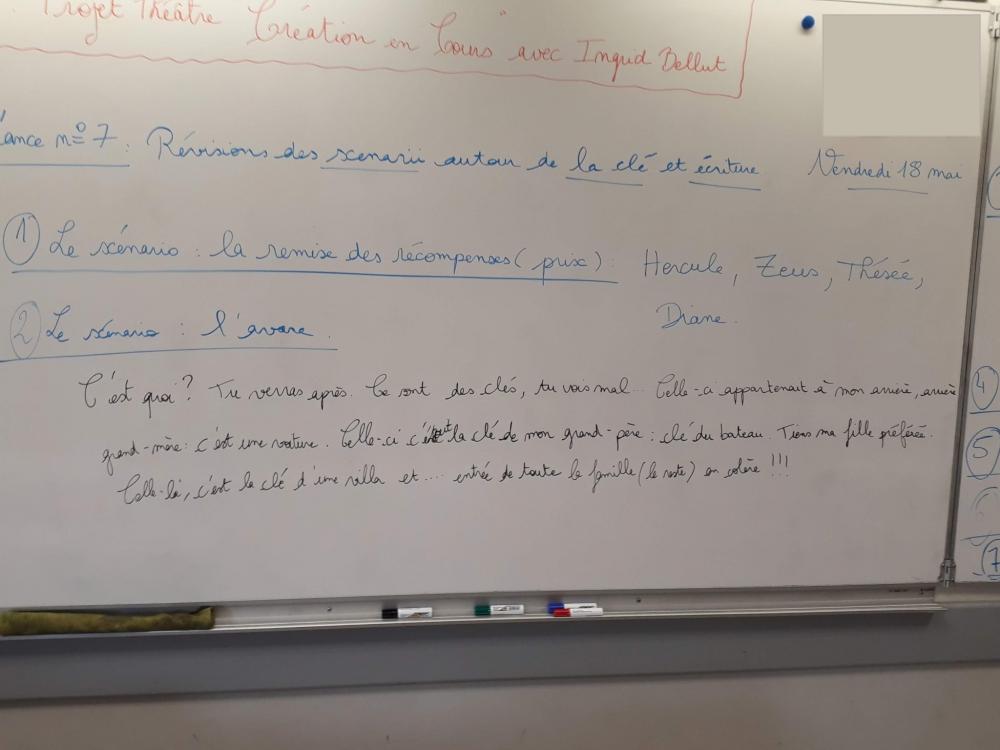 Projet Théâtre Création en Cours avec Ingrid Bellut
éance n° 7 : Révisions des scenarii autour de la clé et écriture Vendredi 18 mai
1 Le scénario : la remise des récompenses (prix) : Hercule, Zeus, Thésée,
Diane.
2 Le scénario : l'avare.
C'est quoi ? Tu verras après. Ce sont des clés, tu vois mal... Celle-ci appartenait à mon arrière, arrière
grand-mère : c'est une voiture. Celle-ci c'était la clé de mon grand-père : clé du bateau. Tiens ma fille préférée.
Celle-là, c'est la clé d'une villa et .... entrée de toute la famille (le reste) en colère !!!
4
5
7